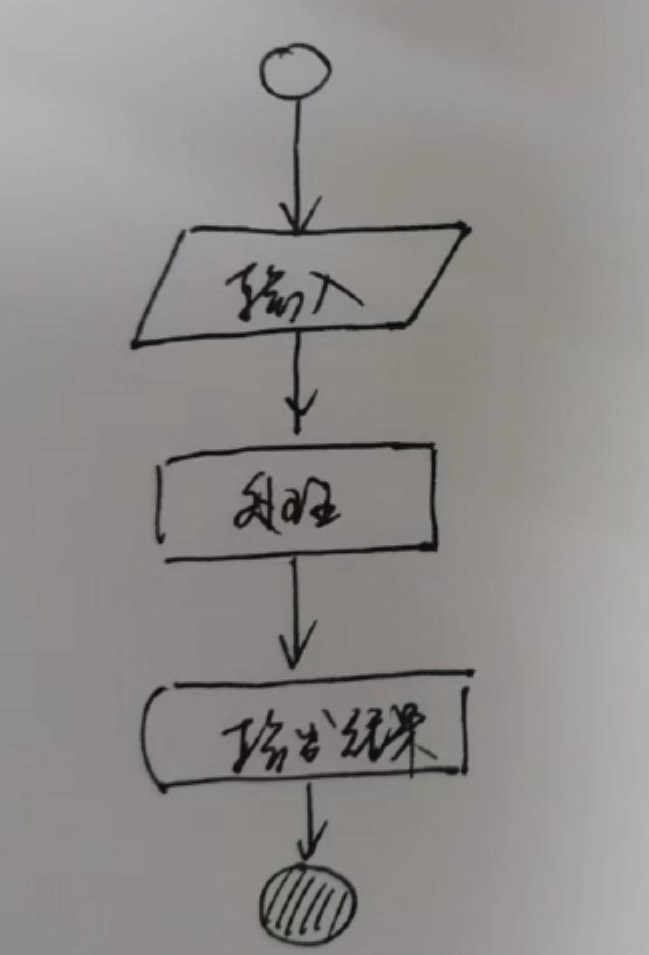 输入
处理
输出结果